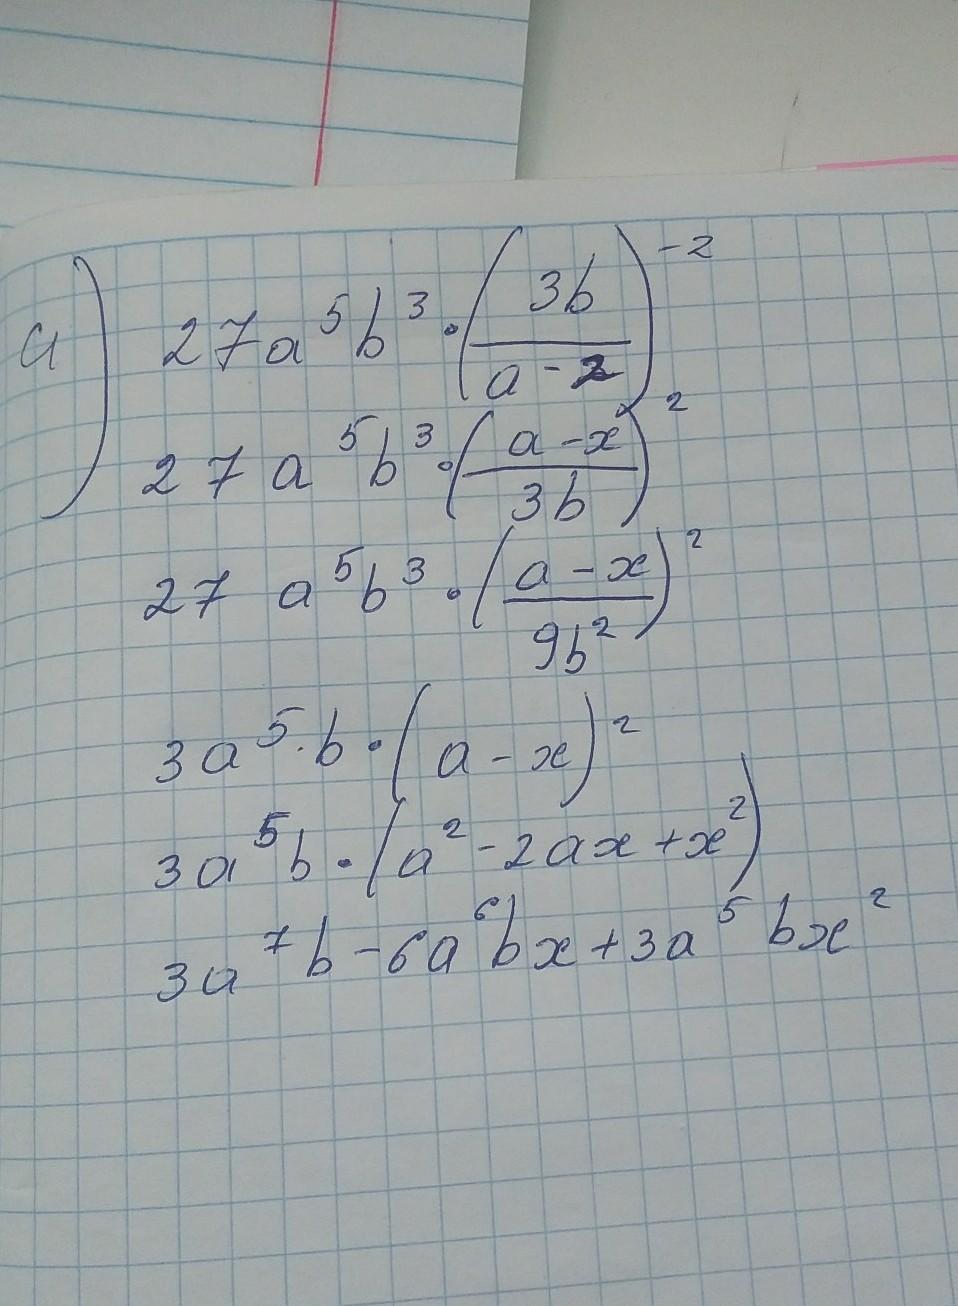 а) 27a⁵b³ · (3b / a - 2)⁻²
27a⁵b³ · (a - x / 3b)²
27 a⁵b³ · (a - x / 9b²)²
3a⁵ · b · (a - x)²
3a⁵b · (a² - 2ax + x²)
3a⁷b - 6a⁶bx + 3a⁵bx²